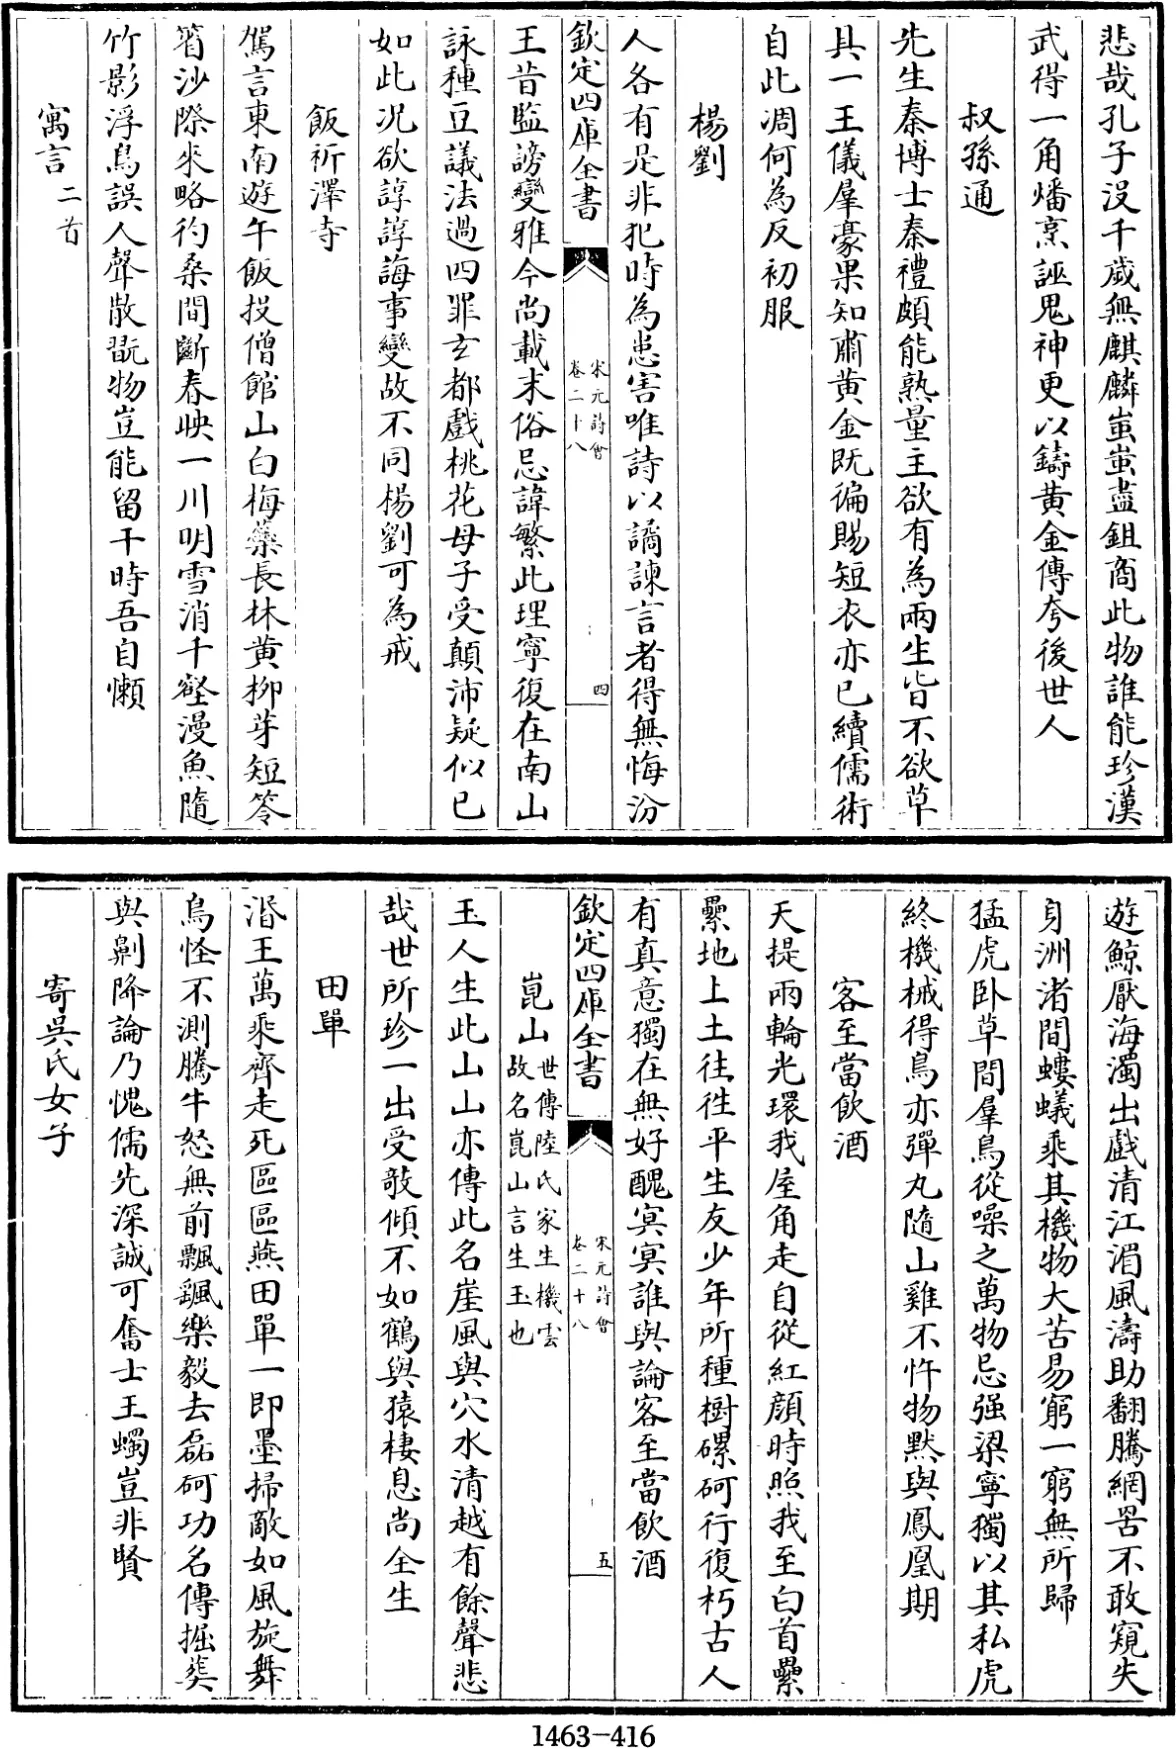 悲哉孔子没千歳無麒麟蚩蚩盡鉏商此物誰能珍漢
武得一角燔烹誣鬼神更以鑄黄金傳夸後世人
叔孫通
先生秦博士秦禮頗能熟量主欲有為兩生皆不欲草
具一王儀羣豪果知肅黄金既徧賜短衣亦已續儒術
自此凋何為反初服
楊劉
人各有是非犯時為患害唯詩以譎諫言者得無悔汾
欽定四庫全書
宋元詩會
卷二十八
四
王昔監謗變雅今尚載末俗忌諱繁此理寧復在南山
詠種豆議法過四罪玄都戲桃花母子受顛沛疑似已
如此况欲諄諄誨事變故不同楊劉可為戒
飯祈澤寺
駕言東南遊午飯投僧館山白梅蘂長林黄柳芽短笭
箵沙際來略彴桑間斷春映一川明雪消千壑漫魚隨
竹影浮鳥誤人聲散翫物豈能留干時吾自懶
寓言二首
遊鯨厭海濁出戲清江湄風濤助翻騰網罟不敢窺失
身洲渚間螻蟻乘其機物大苦易窮一窮無所歸
猛虎卧草間羣鳥從噪之萬物忌强梁寧獨以其私虎
終機械得鳥亦彈丸隨山雞不忤物黙與鳳凰期
客至當飲酒
天提兩輪光環我屋角走自從紅顔時照我至白首纍
纍地上土往往平生友少年所種樹礧砢行復朽古人
有真意獨在無好醜冥冥誰與論客至當飲酒
欽定四庫全書
宋元詩會
卷二十八
五
崑山世傳陸氏家生機雲
故名崑山言生玉也
玉人生此山山亦傳此名崖風與穴水清越有餘聲悲
哉世所珍一出受敧傾不如鶴與猿棲息尚全生
田單
湣王萬乘齊走死區區燕田單一即墨掃敵如風旋舞
鳥怪不測騰牛怒無前飄颻樂毅去磊砢功名傳掘葬
與劓降論乃愧儒先深誠可奮士王蠋豈非賢
寄吳氏女子
1463-416